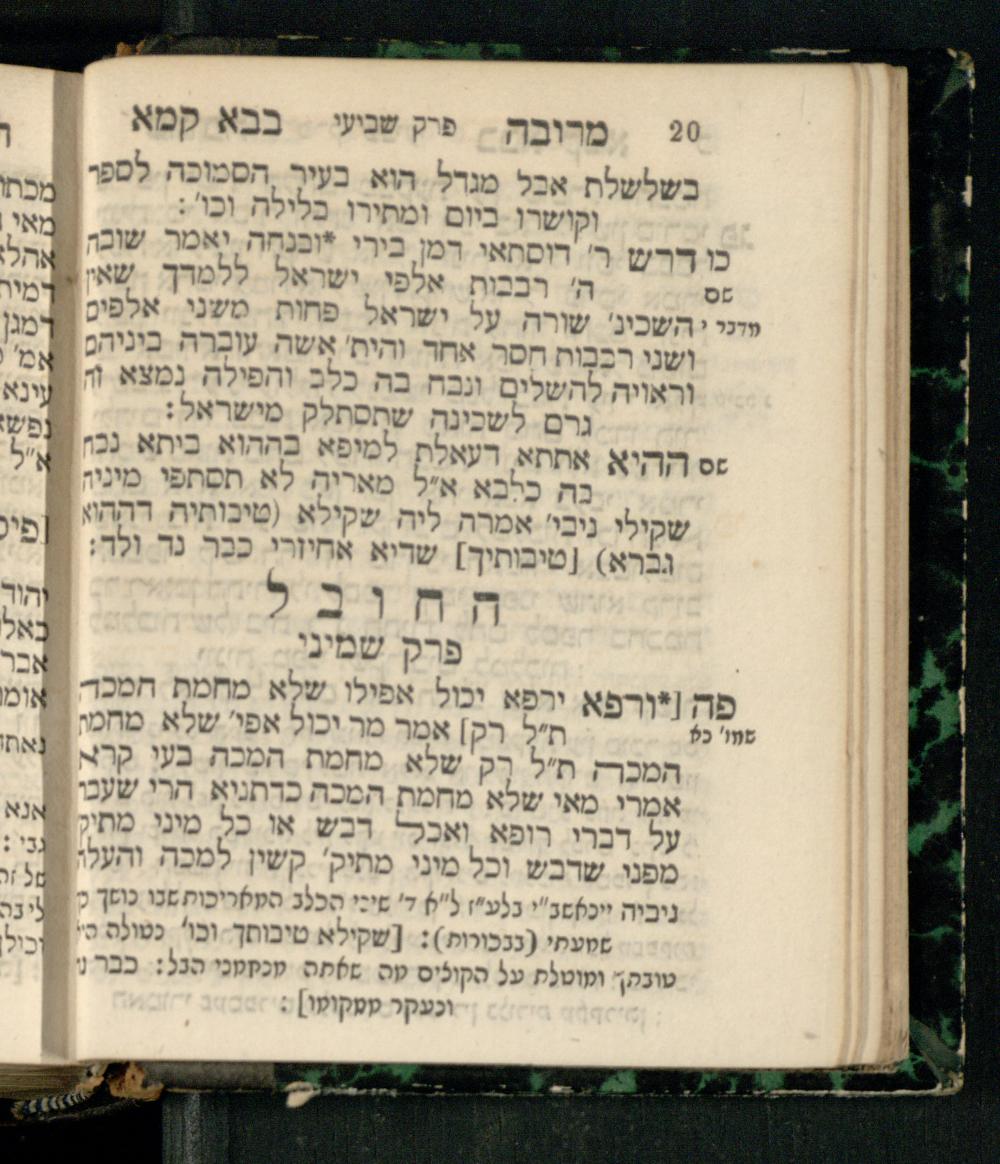 20 מרובה פרק שביעי בבא קמא
בשלשלת אבל מגדל הוא בעיר הסמוכה לספר
וקושרו ביום ומתירו בלילה וכו' :
כו דרש ר' דוסתאי דמן בירי *ובנחה יאמר שובה
שם ה' רבבות אלפי ישראל ללמדך שאין
מדבר י השכינ' שורה על ישראל פחות משני אלפים
ושני רבבות חסר אחד והית' אשה עוברה ביניהם
וראויה להשלים ונבח בה כלב והפילה נמצא זה
גרם לשכינה שתסתלק מישראל :
שם ההיא אתתא דעאלת למיפא בההוא ביתא נבח
בה כלבא א"ל מאריה לא תסתפי מיניה
שקילי ניבי' אמרה ליה שקילא (טיבותיה דההוא
גברא) [טיבותיך] שדיא אחיזרי כבר נד ולד :
החובל
פרק שמיני
פה [*ורפא ירפא יכול אפילו שלא מחמת המכה
שמו' כא ת"ל רק] אמר מר יכול אפי' שלא מחמת
המכה ת"ל רק שלא מחמת המכה בעי קרא
אמרי מאי שלא מחמת המכה כדתניא הרי שעבר
על דברי רופא ואכל דבש או כל מיני מתיק
מפני שדבש וכל מיני מתיק' קשין למכה והעלה
ניביה ייכאשב"י בלע"ז ל"א ד' שיני הכלב המאריכות שבו כושך
שמעתי (בבכורות) : [שקילא טיבותך וכו' נטולה
טובתך ומוטלת על הקוצים מה שאתה מנחמני הבל : כבר
ונעקר ממקומו] :
מכתו
מאי
אהלא
דמית
דמגן
אמ'
עינא
נפשא
א"ל
יהוד
כאלו
אבר
אומ
נאתד
אנא
גבי :
של